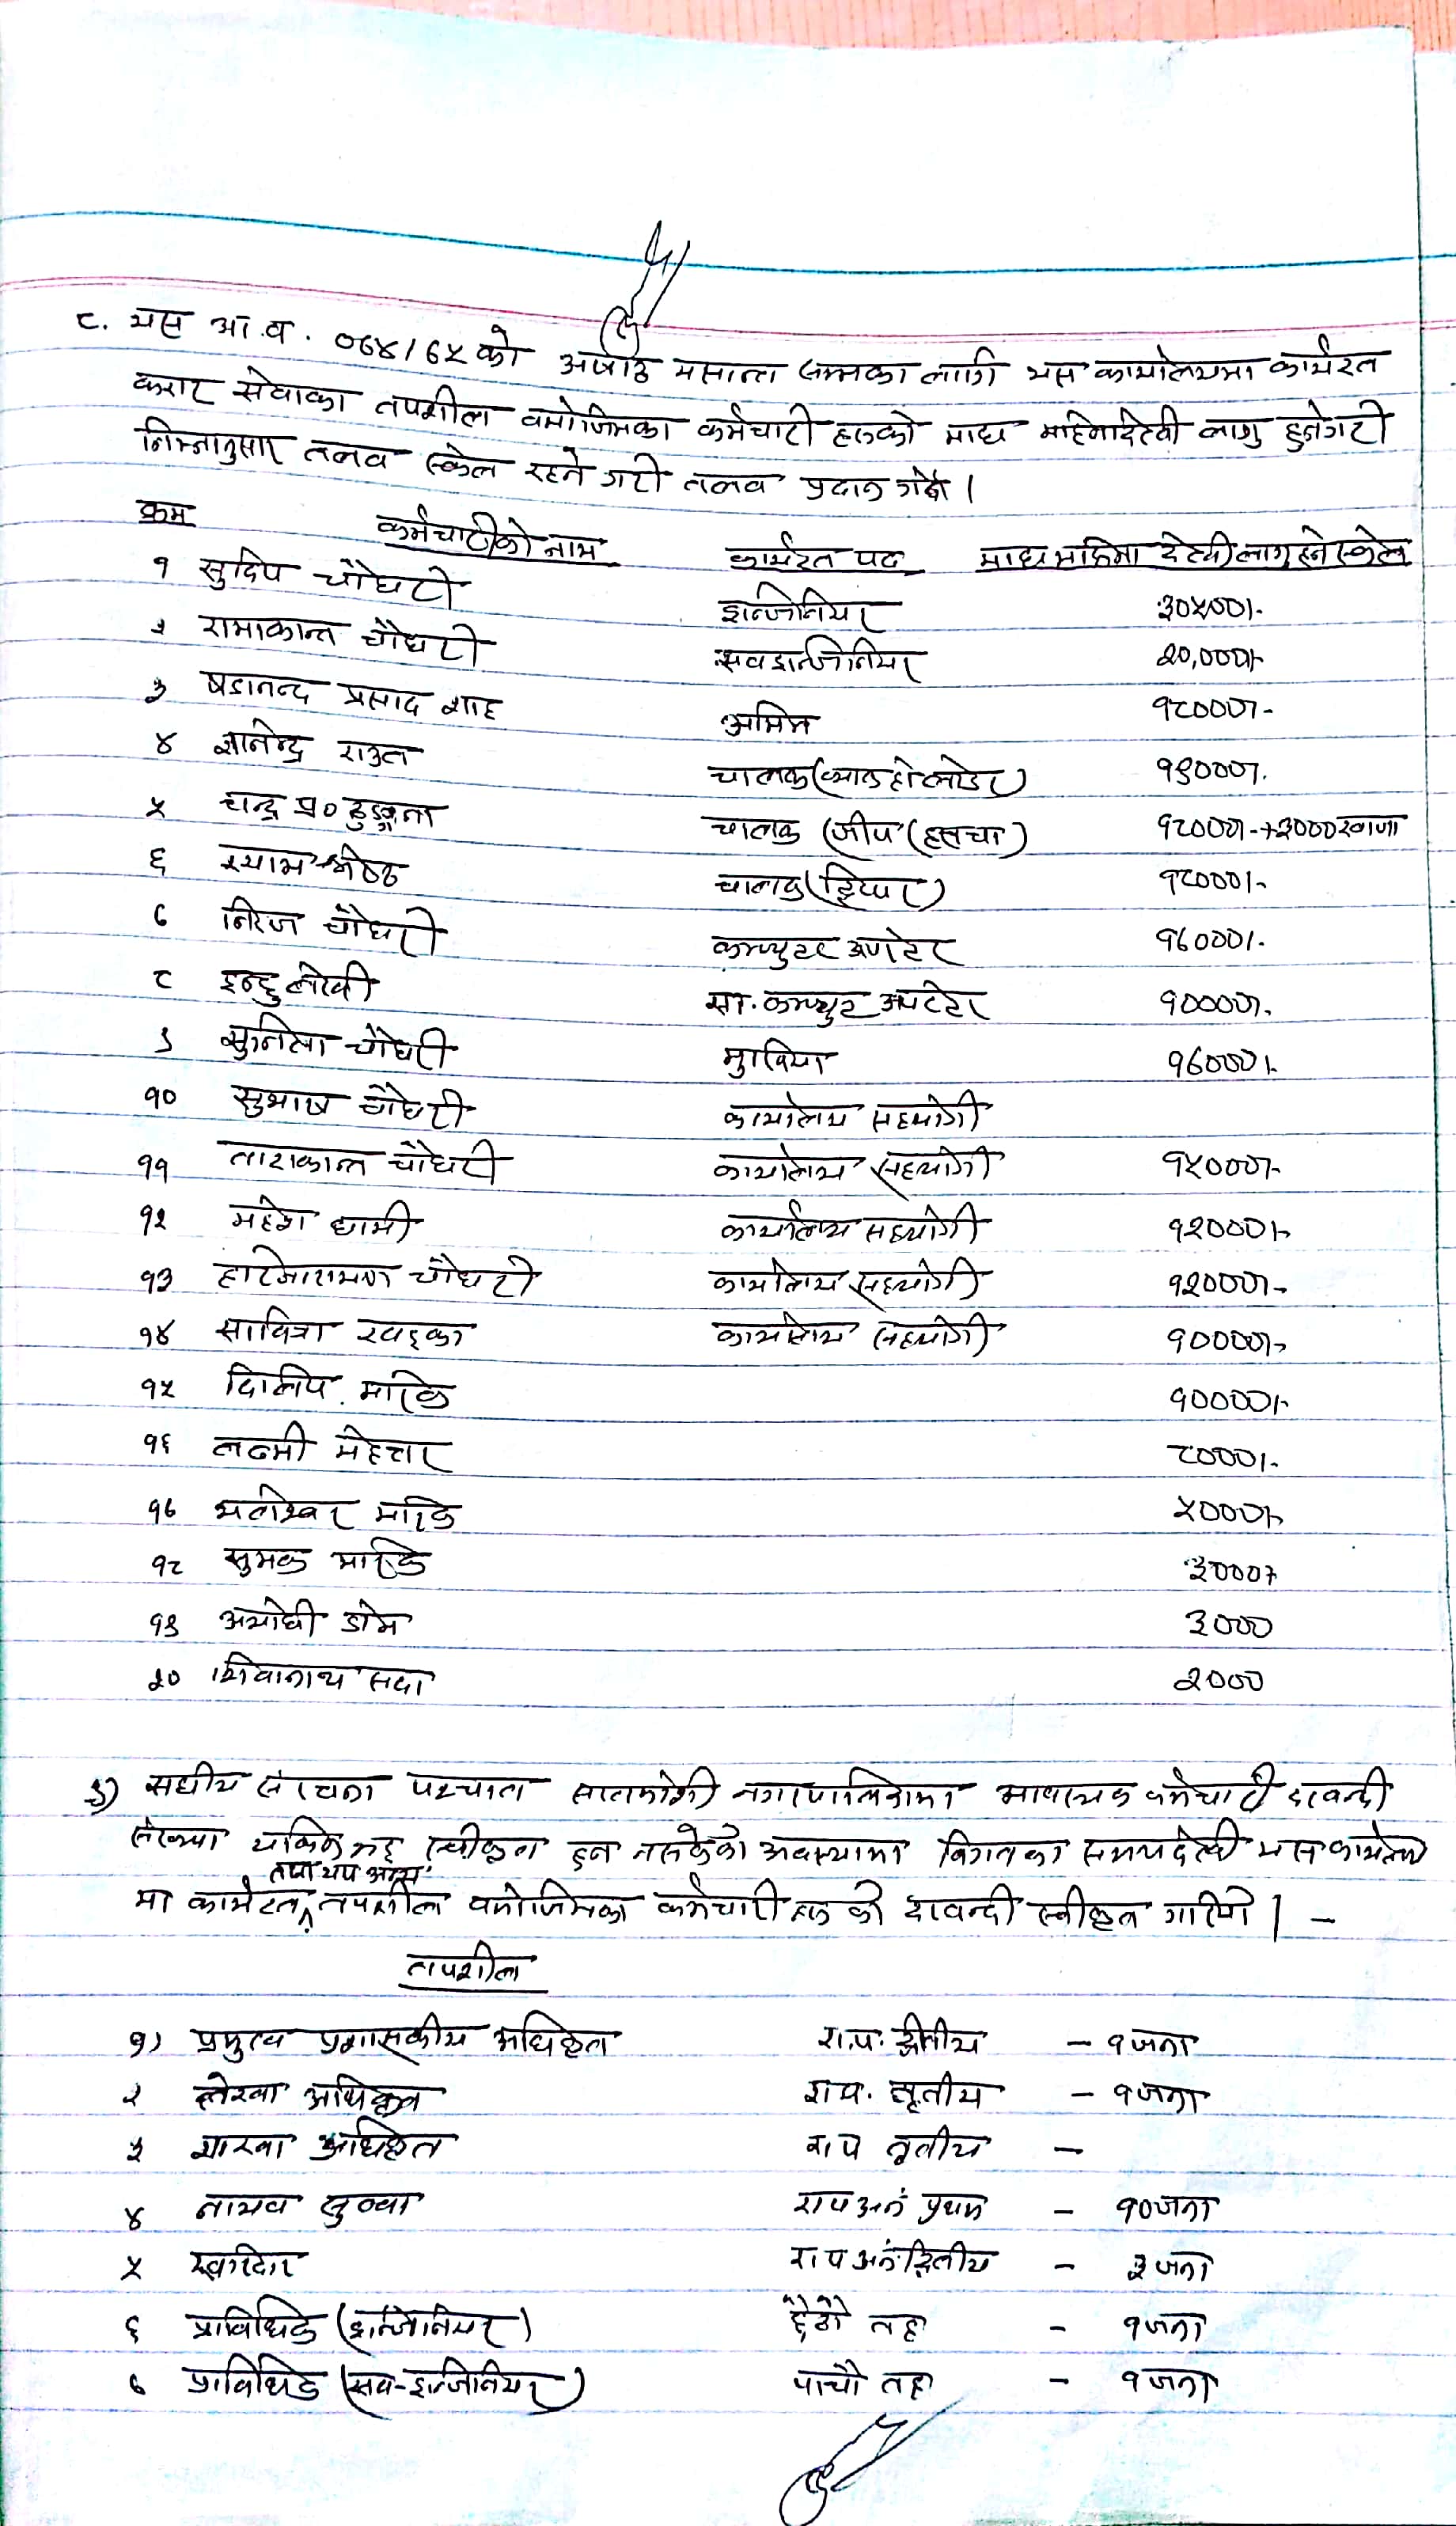 ८. यस आ.व. ०७४/७५ को अषाढ मसान्त सम्मका लागि यस कार्यालयमा कार्यरत
करार सेवाका तपशील वमोजिमका कर्मचारी हरुको माघ महिनादेखी लागु हुनेगरी
निम्नानुसार तलव स्केल रहने गरी तलव प्रदान गर्ने।
क्रम कर्मचारीको नाम कार्यरत पद माघ महिना देखी लागु हुने स्केल
१ सुदिप चौधरी इन्जिनियर ३०५००/-
२ रामाकान्त चौधरी सवइन्जिनियर २०,०००/-
३ षडानन्द प्रसाद शाह अमिन १८०००/-
४ ज्ञानेन्द्र राउत चालक (व्याक हो लोडर) १९०००/-
५ चन्द्र प्र० ढुङ्गाना चालक (जीप (हलचा) १८०००/-+३००० खाजा
६ श्याम श्रेष्ठ चालक (ट्रिपर) १८०००/-
७ निरज चौधरी कम्प्युटर अपरेटर १७०००/-
८ इन्दु लोखी सा. कम्प्युटर अपरेटर १००००/-
९ सुनिता चौधरी मुखिया १७०००/-
१० सुभाष चौधरी कार्यालय सहयोगी
११ ताराकान्त चौधरी कार्यालय सहयोगी १५०००/-
१२ महेश धामी कार्यालय सहयोगी १२०००/-
१३ हरिनारायण चौधरी कार्यालय सहयोगी १२०००/-
१४ सावित्रा खड्का कार्यालय सहयोगी १००००/-
१५ दिलिप माझि १००००/-
१६ लक्ष्मी मेहत्तर ८०००/-
१७ भलेश्वर माझि ५०००/-
१८ सुमक माझि ३०००/-
१९ अयोधी डोम ३०००
२० शिवानाथ सदा २०००
९) संघीय संरचना पश्चात सप्तकोशी नगरपालिकामा आवश्यक कर्मचारी दरवन्दी
संख्या यकिन भइ स्वीकृत हुन नसकेको अवस्थामा विगतका समयदेखी यस कार्यालय
तथा थप अन्य
मा कार्यरत तपशील वमोजिमका कर्मचारी हरु को दरवन्दी स्वीकृत गरियो। -
तपशील
१) प्रमुख प्रशासकीय अधिकृत रा.प. द्वीतीय - १ जना
२ लेखा अधिकृत रा.प. तृतीय - १ जना
३ शाखा अधिकृत रा प तृतीय -
४ नायव सुव्वा रा प अनं प्रथम - १० जना
५ खरिदार रा प अनं द्वितीय - ३ जना
६ प्राविधिक (इन्जिनियर) छैठौ तह - १ जना
७ प्राविधिक (सव-इन्जिनियर) पाचौ तह - १ जना